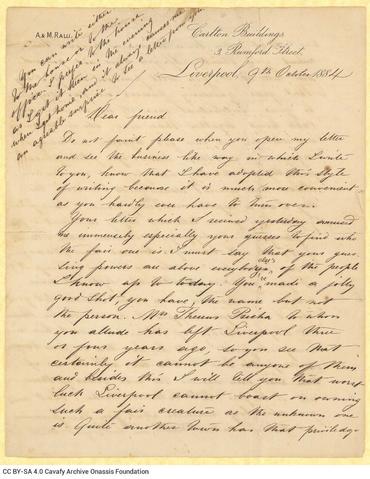 A & M. RALLI.
Carlton Buildings
3, Rumford Street,
Liverpool, 9th October 1884
You can write either
to the house or to the
office. I prefer to the house
as I get it then in the evening
when I get home and it always causes me
an agreable surprise to see a letter from you
Dear friend
Do not faint please when you open my letter
and see the business like way in which I write
to you, know that I have adopted this style
of writing because it is much more convenient
as you hardly ever have to turn over.
Your letter which I received yesterday amused
me immensely especially your guesses to find who
the fair one is. I must say that your gues-
sing powers are above everybody else's of the people
I know up to today. You've made a jolly
good shot, you have, the name but not
the person. Miss Ralli to whom
you allude has left Liverpool three
or four years ago, so you see that
certainly it cannot be anyone of them
and besides this I will tell you that worst
luck Liverpool cannot boast on owning
such a fair creature as the unknown one
is. Quite another town has that privilege
CC BY-SA 4.0 Cavafy Archive Onassis Foundation